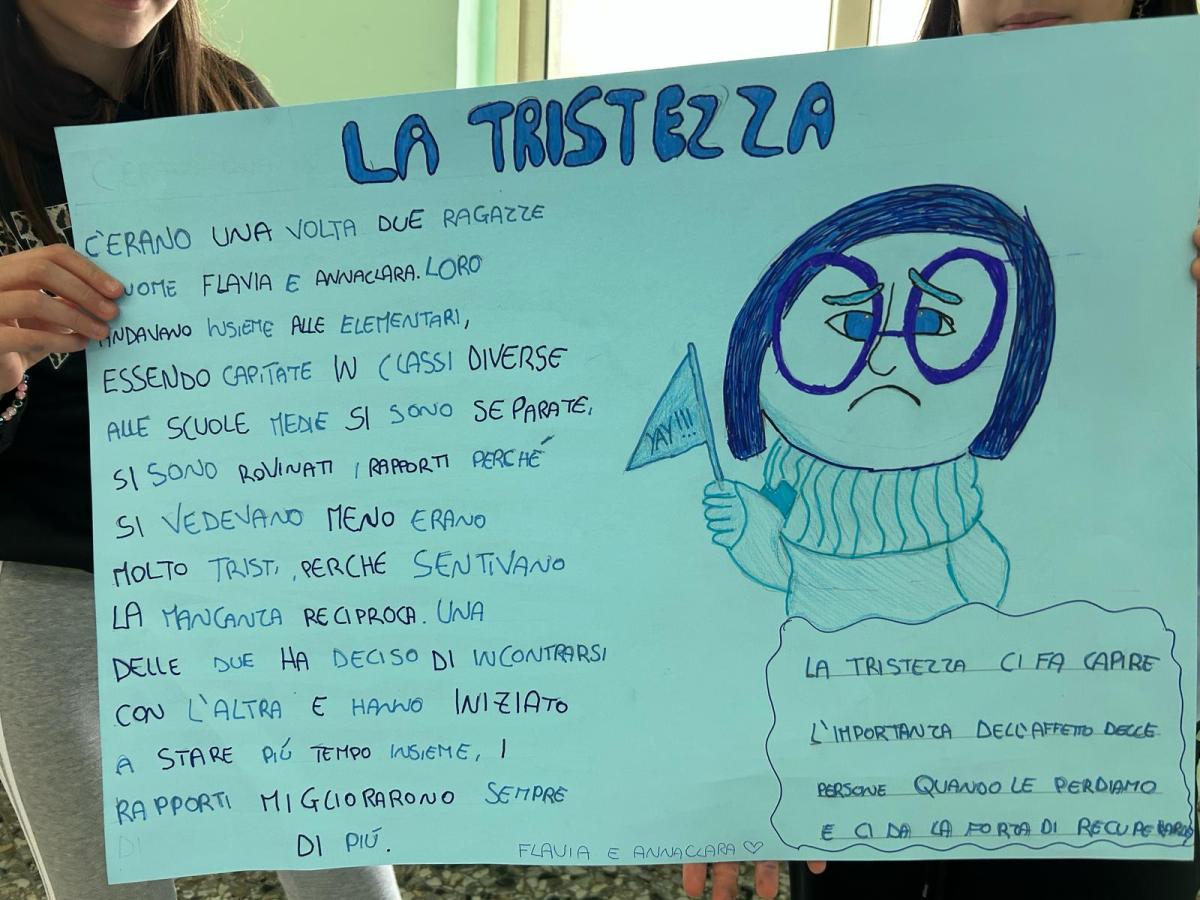 LA TRISTEZZA
C'ERANO UNA VOLTA DUE RAGAZZE
NOME FLAVIA E ANNACLARA. LORO
ANDAVANO INSIEME ALLE ELEMENTARI,
ESSENDO CAPITATE IN CLASSI DIVERSE
ALLE SCUOLE MEDIE SI SONO SEPARATE,
SI SONO ROVINATI I RAPPORTI PERCHÉ
SI VEDEVANO MENO ERANO
MOLTO TRISTI, PERCHÉ SENTIVANO
LA MANCANZA RECIPROCA. UNA
DELLE DUE HA DECISO DI INCONTRARSI
CON L'ALTRA E HANNO INIZIATO
A STARE PIÚ TEMPO INSIEME, I
RAPPORTI MIGLIORARONO SEMPRE
DI PIÚ.
FLAVIA E ANNACLARA ♡
YAY!!!
LA TRISTEZZA CI FA CAPIRE
L'IMPORTANZA DELL'AFFETTO DELLE
PERSONE QUANDO LE PERDIAMO
E CI DA LA FORZA DI RECUPERARLO